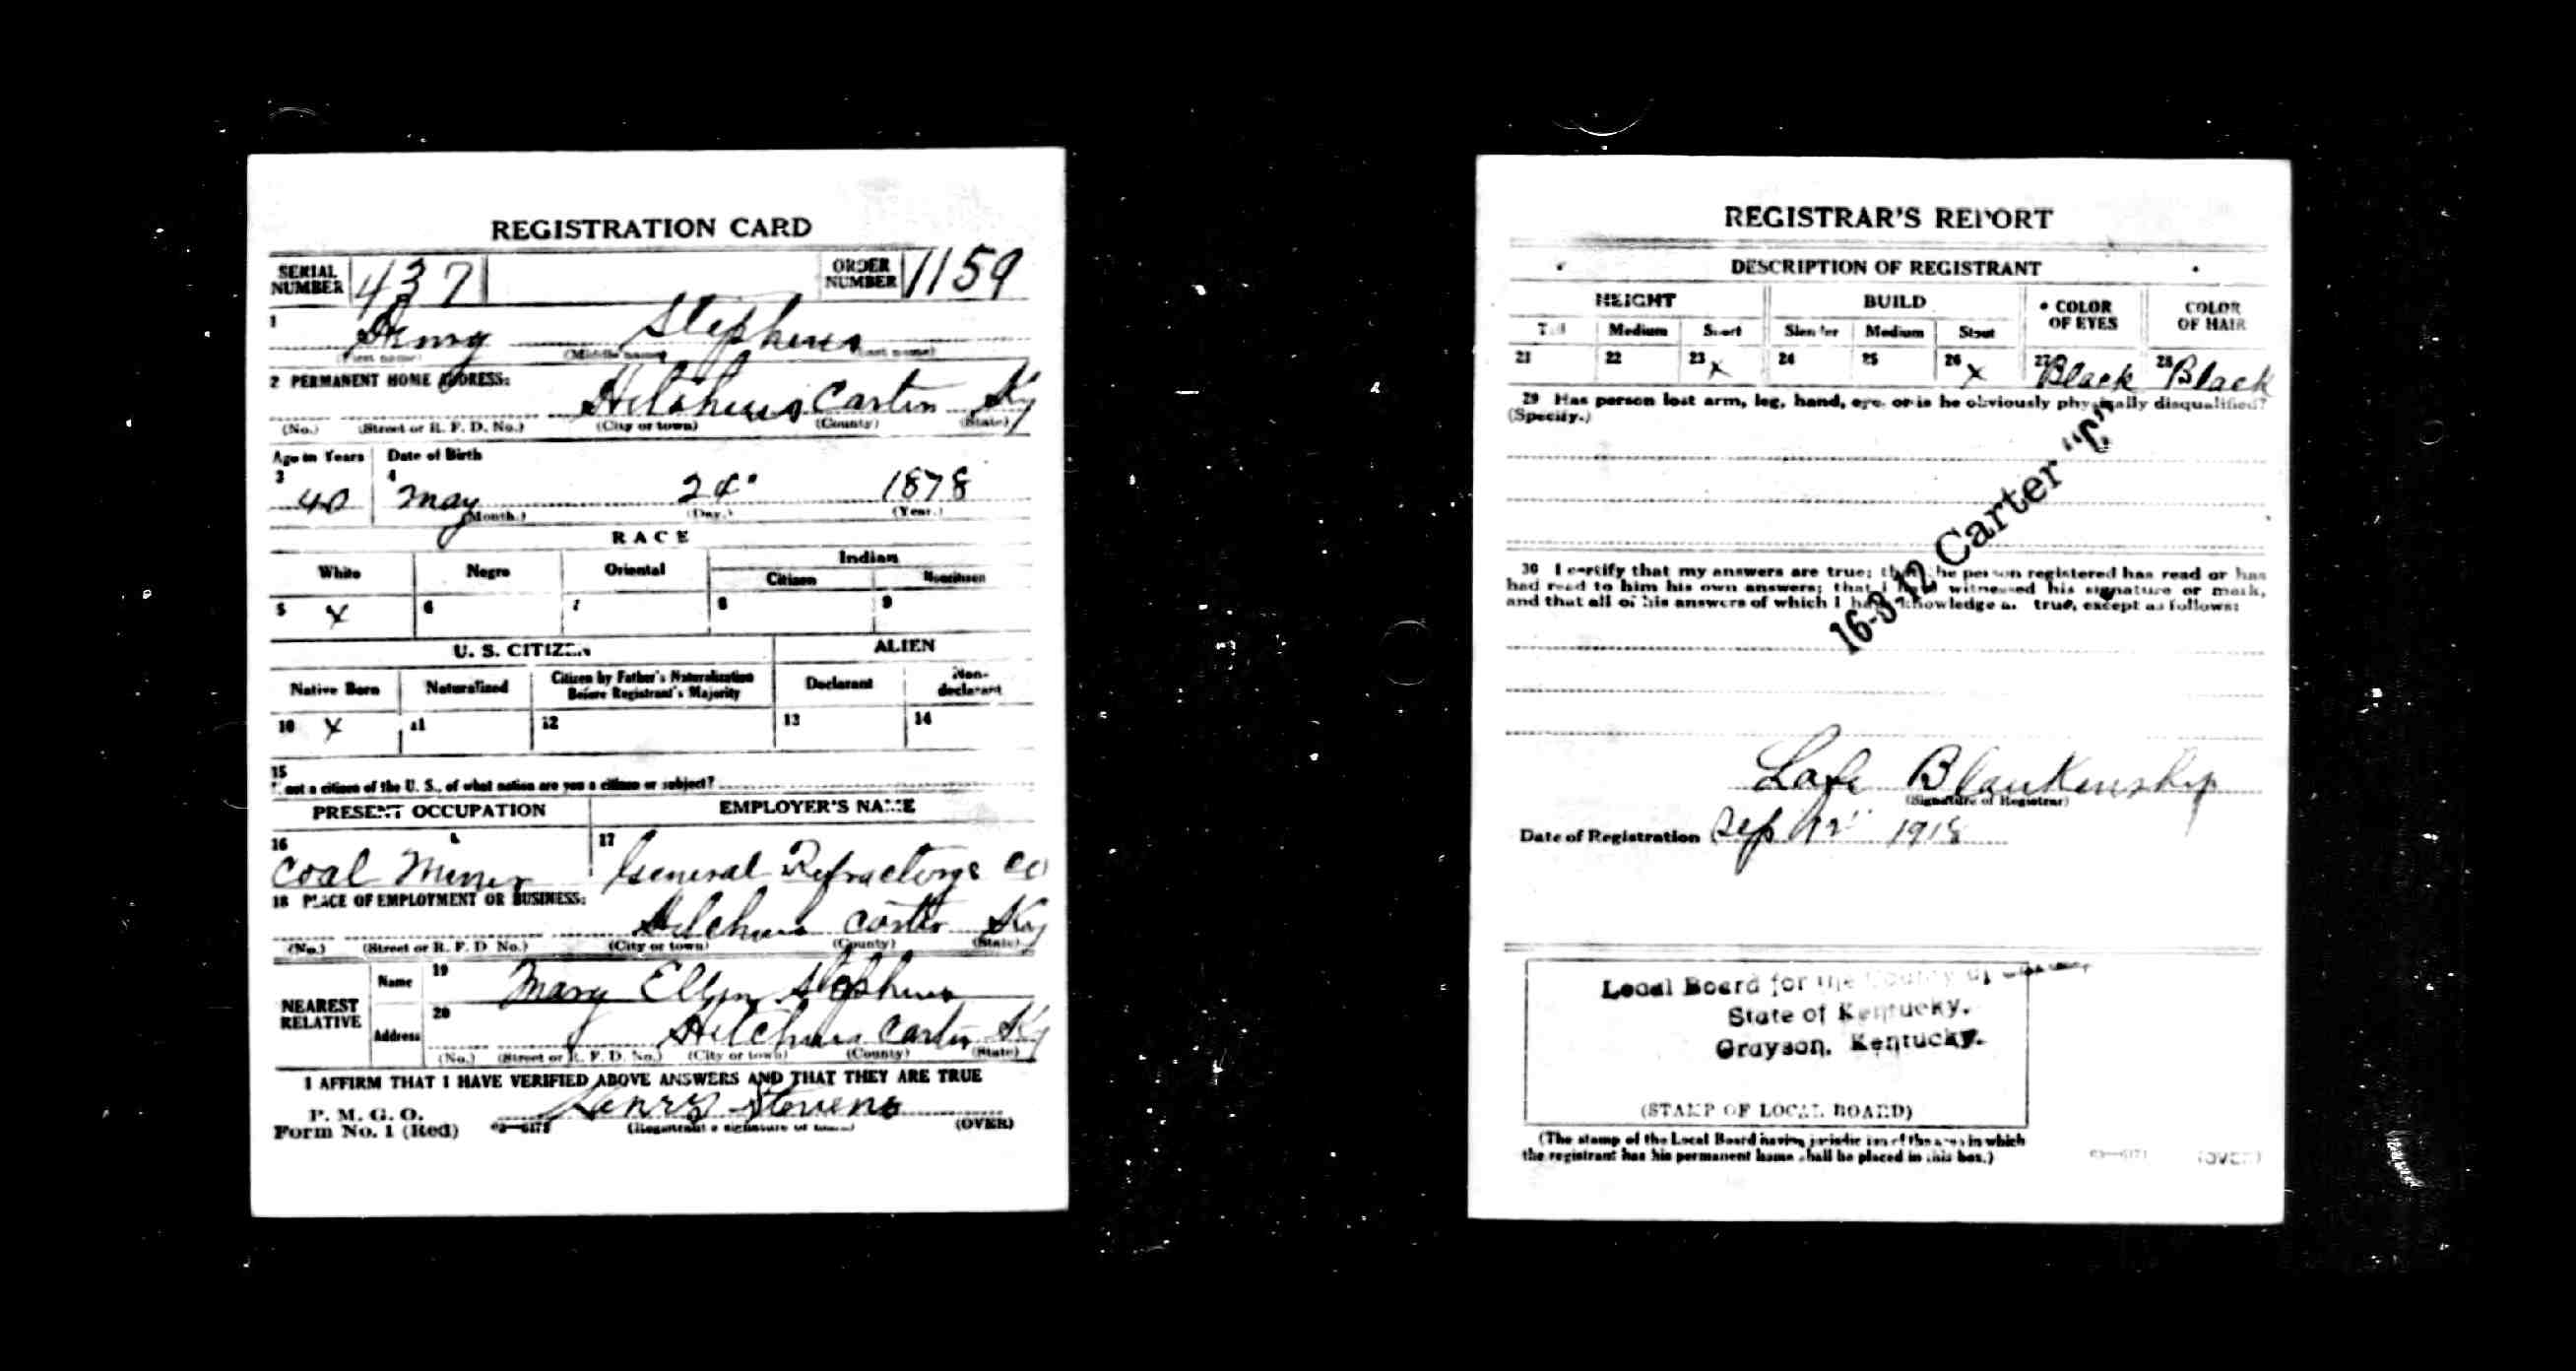 REGISTRATION CARD
SERIAL NUMBER 437 ORDER NUMBER 1159
1 Henry Stephens
(First name) (Middle name) (Last name)
2 PERMANENT HOME ADDRESS:
Hitchins Carter Ky
(No.) (Street or R. F. D. No.) (City or town) (County) (State)
Age in Years Date of Birth
3 40 4 May 24" 1878
(Month.) (Day.) (Year.)
RACE
White Negro Oriental Indian
Citizen Noncitizen
5 X 6 7 8 9
U. S. CITIZEN ALIEN
Native Born Naturalized Citizen by Father's Naturalization Before Registrant's Majority Declarant Non-declarant
10 X 11 12 13 14
15
If not a citizen of the U. S., of what nation are you a citizen or subject?
PRESENT OCCUPATION EMPLOYER'S NAME
16 Coal Miner 17 General Refractorys Co
18 PLACE OF EMPLOYMENT OR BUSINESS:
Hitchins Carter Ky
(No.) (Street or R. F. D. No.) (City or town) (County) (State)
NEAREST RELATIVE Name 19 Mary Ellen Stephens
Address 20 Hitchins Carter Ky
(No.) (Street or R. F. D. No.) (City or town) (County) (State)
I AFFIRM THAT I HAVE VERIFIED ABOVE ANSWERS AND THAT THEY ARE TRUE
P. M. G. O.
Form No. 1 (Red) 03—6171 Henry Stevens (OVER)
(Registrant's signature or mark)
REGISTRAR'S REPORT
DESCRIPTION OF REGISTRANT
HEIGHT BUILD COLOR OF EYES COLOR OF HAIR
Tall Medium Short Slender Medium Stout
21 22 23 X 24 25 26 X 27 Black 28 Black
29 Has person lost arm, leg, hand, eye, or is he obviously physically disqualified?
(Specify.)
16-3-12 Carter "C"
30 I certify that my answers are true; that the person registered has read or has
had read to him his own answers; that I have witnessed his signature or mark,
and that all of his answers of which I have knowledge are true, except as follows:
Lafe Blankenship
(Signature of Registrar)
Date of Registration Sep 12" 1918
Local Board for the County of Carter,
State of Kentucky.
Grayson, Kentucky.
(STAMP OF LOCAL BOARD)
(The stamp of the Local Board having jurisdiction of the area in which
the registrant has his permanent home shall be placed in this box.)
03—6171 (OVER)